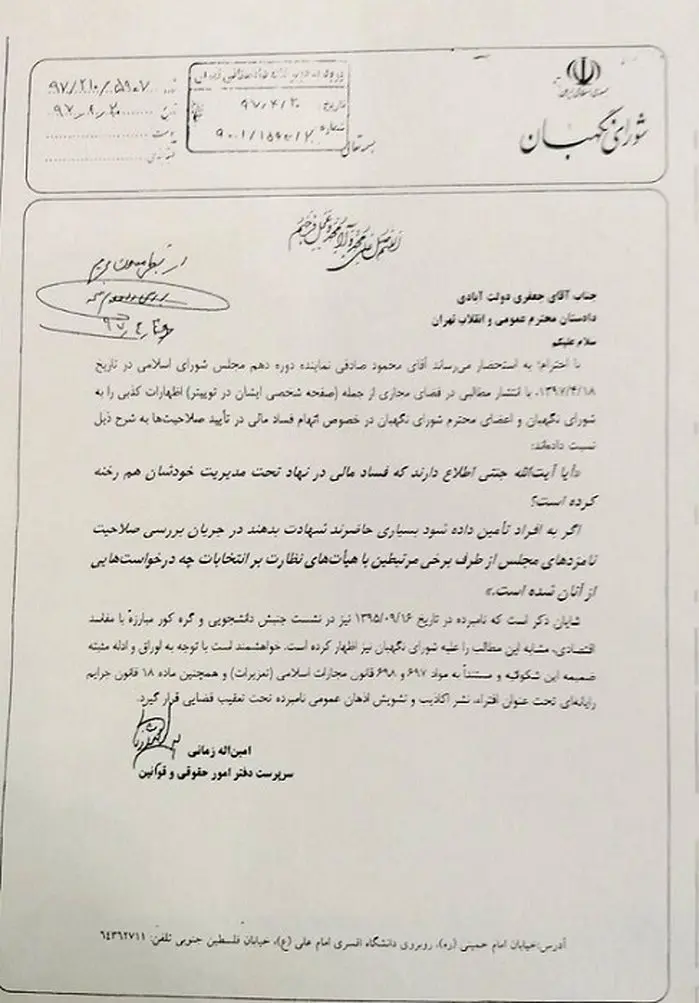 جمهوری اسلامی ایران
شورای نگهبان
شماره ۹۷/۲۱۰/۵۹۰۷
تاریخ
پیوست
تاریخ: ۹۷/۴/۲۰
شماره
اللهم صل علی محمد و آل محمد و عجل فرجهم
جناب آقای جعفری دولت آبادی
دادستان محترم عمومی و انقلاب تهران
سلام علیکم
با احترام؛ به استحضار می‌رساند آقای محمود صادقی نماینده دوره دهم مجلس شورای اسلامی در تاریخ
۱۳۹۷/۴/۱۸، با انتشار مطالبی در فضای مجازی از جمله (صفحه شخصی ایشان در توییتر) اظهارات کذبی را به
شورای نگهبان و اعضای محترم شورای نگهبان در خصوص اتهام فساد مالی در تأیید صلاحیت‌ها به شرح ذیل
نسبت داده‌اند:
«آیا آیت‌الله جنتی اطلاع دارند که فساد مالی در نهاد تحت مدیریت خودشان هم رخنه
کرده است؟
اگر به افراد تأمین داده شود بسیاری حاضرند شهادت بدهند در جریان بررسی صلاحیت
نامزدهای مجلس از طرف برخی مرتبطین با هیأت‌های نظارت بر انتخابات چه درخواست‌هایی
از آنان شده است.»
شایان ذکر است که نامبرده در تاریخ ۱۳۹۵/۰۹/۱۶ نیز در نشست جنبش دانشجویی و گره کور مبارزه با مفاسد
اقتصادی، مشابه این مطالب را علیه شورای نگهبان نیز اظهار کرده است. خواهشمند است با توجه به اوراق و ادله مثبته
ضمیمه این شکوائیه و مستنداً به مواد ۶۹۷ و ۶۹۸ قانون مجازات اسلامی (تعزیرات) و همچنین ماده ۱۸ قانون جرایم
رایانه‌ای تحت عنوان افتراء، نشر اکاذیب و تشویش اذهان عمومی نامبرده تحت تعقیب قضایی قرار گیرد.
امین‌اله زمانی
سرپرست دفتر امور حقوقی و قوانین
آدرس:خیابان امام خمینی (ره)، روبروی دانشگاه افسری امام علی (ع)، خیابان فلسطین جنوبی تلفن: ۶۴۳۶۲۷۱۱